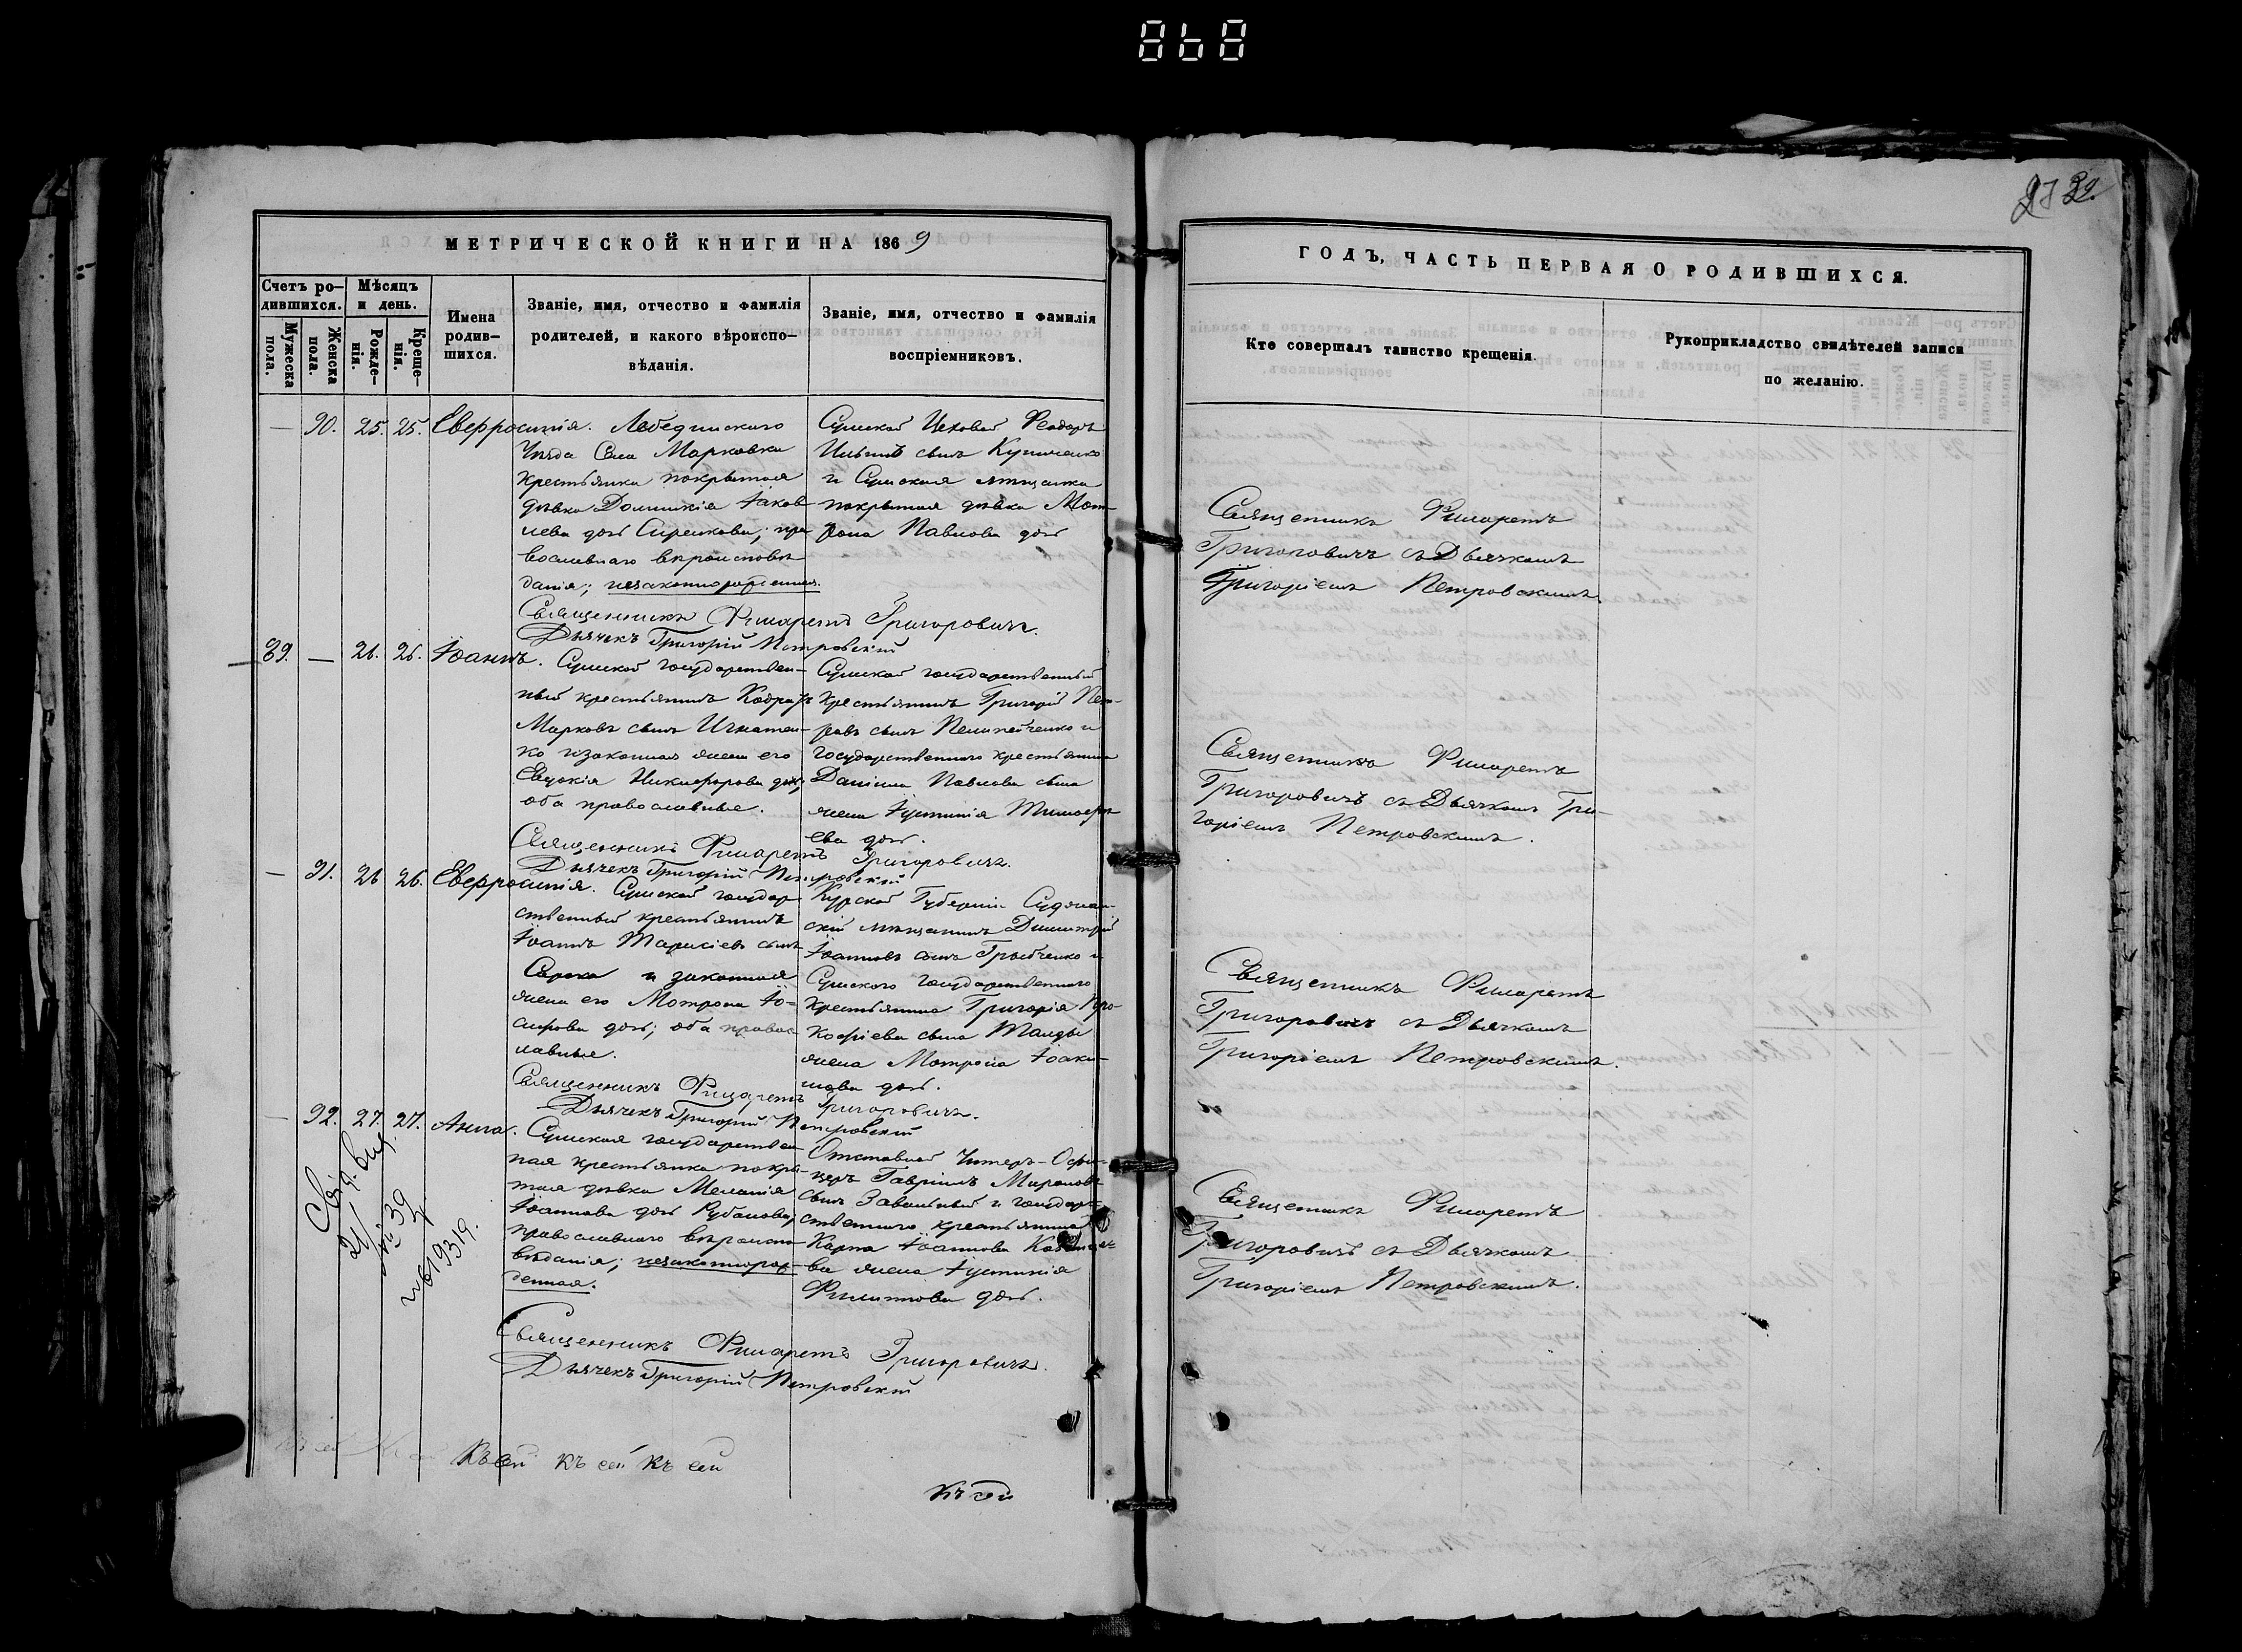 868
МЕТРИЧЕСКОЙ КНИГИ НА 1869
Счетъ ро-
дившихся.
Мужеска
пола.
Женска
пола.
Мѣсяцъ
и день.
Рожде-
нія.
Креще-
нія.
Имена
родив-
шихся.
Званіе, имя, отчество и фамилія
родителей, и какого вѣроиспо-
вѣданія.
Званіе, имя, отчество и фамилія
воспріемниковъ.
— 90. 25. 25. Евфросинія.
Лебединскаго
Уѣзда Села Марковки
крестьянка покрытая
дѣвка Домникія Іаков
лева дочь; пра
вославнаго вѣроисповѣ
данія; незаконнорожденная.
Сумской Цеховой Ѳеодоръ
сынъ
и Сумская мѣщанка
покрытая дѣвка Мат-
рона Павлова дочь
Священникъ Филаретъ Григоровичъ.
Дьячекъ Григорій Петровскій
89. — 26. 26. Іоаннъ.
Сумской государствен-
ный крестьянинъ Кодратъ
Марковъ сынъ Игнатен-
ко и законная жена его
Евдокія Никифорова дочь,
оба православные.
Сумской государственный
крестьянинъ Григорій Пет-
ровъ сынъ и
государственнаго крестьянина
Даніила Павлова сына
жена Іустинія Тимоѳе-
ева дочь.
Священникъ Филаретъ Григоровичъ.
Дьячекъ Григорій Петровскій
— 91. 26 26. Евфросинія.
Сумской государ
ственный крестьянинъ
Іоаннъ Тарасіевъ сынъ
Сорока и законная
жена его Матрона Іо-
сифова дочь; оба правос
лавные.
Курской Губерніи Суджан-
скій мѣщанинъ Димитрій
Іоанновъ сынъ и
Сумского государственнаго
крестьянина Григорія Про-
кофіева сына
жена Матрона Іоаки-
мова дочь.
Священникъ Филаретъ Григоровичъ.
Дьячекъ Григорій Петровскій
— 92. 27. 27. Анна.
Сумская государствен
ная крестьянка покры-
тая дѣвка Меланія
Іоаннова дочь Рубанова;
православнаго вѣроиспо
вѣданія; незаконнорож-
денная.
Отставной Унтеръ-Офи-
церъ Гавріилъ Мироновъ
сынъ и государ-
ственнаго крестьянина
Карпа Іоаннова
ва жена Іустинія
Филиппова дочь.
Священникъ Филаретъ Григоровичъ.
Дьячекъ Григорій Петровскій
№ 19319.
Къ сей Къ сей Къ сей
Къ сей
32.
ГОДЪ, ЧАСТЬ ПЕРВАЯ О РОДИВШИХСЯ.
Кто совершалъ таинство крещенія.
Рукоприкладство свидѣтелей записи
по желанію.
Священникъ Филаретъ
Григоровичъ съ Дьячкомъ
Григоріемъ Петровскимъ.
Священникъ Филаретъ
Григоровичъ съ Дьячкомъ Гри-
горіемъ Петровскимъ.
Священникъ Филаретъ
Григоровичъ съ Дьячкомъ
Григоріемъ Петровскимъ.
Священникъ Филаретъ
Григоровичъ съ Дьячкомъ
Григоріемъ Петровскимъ.